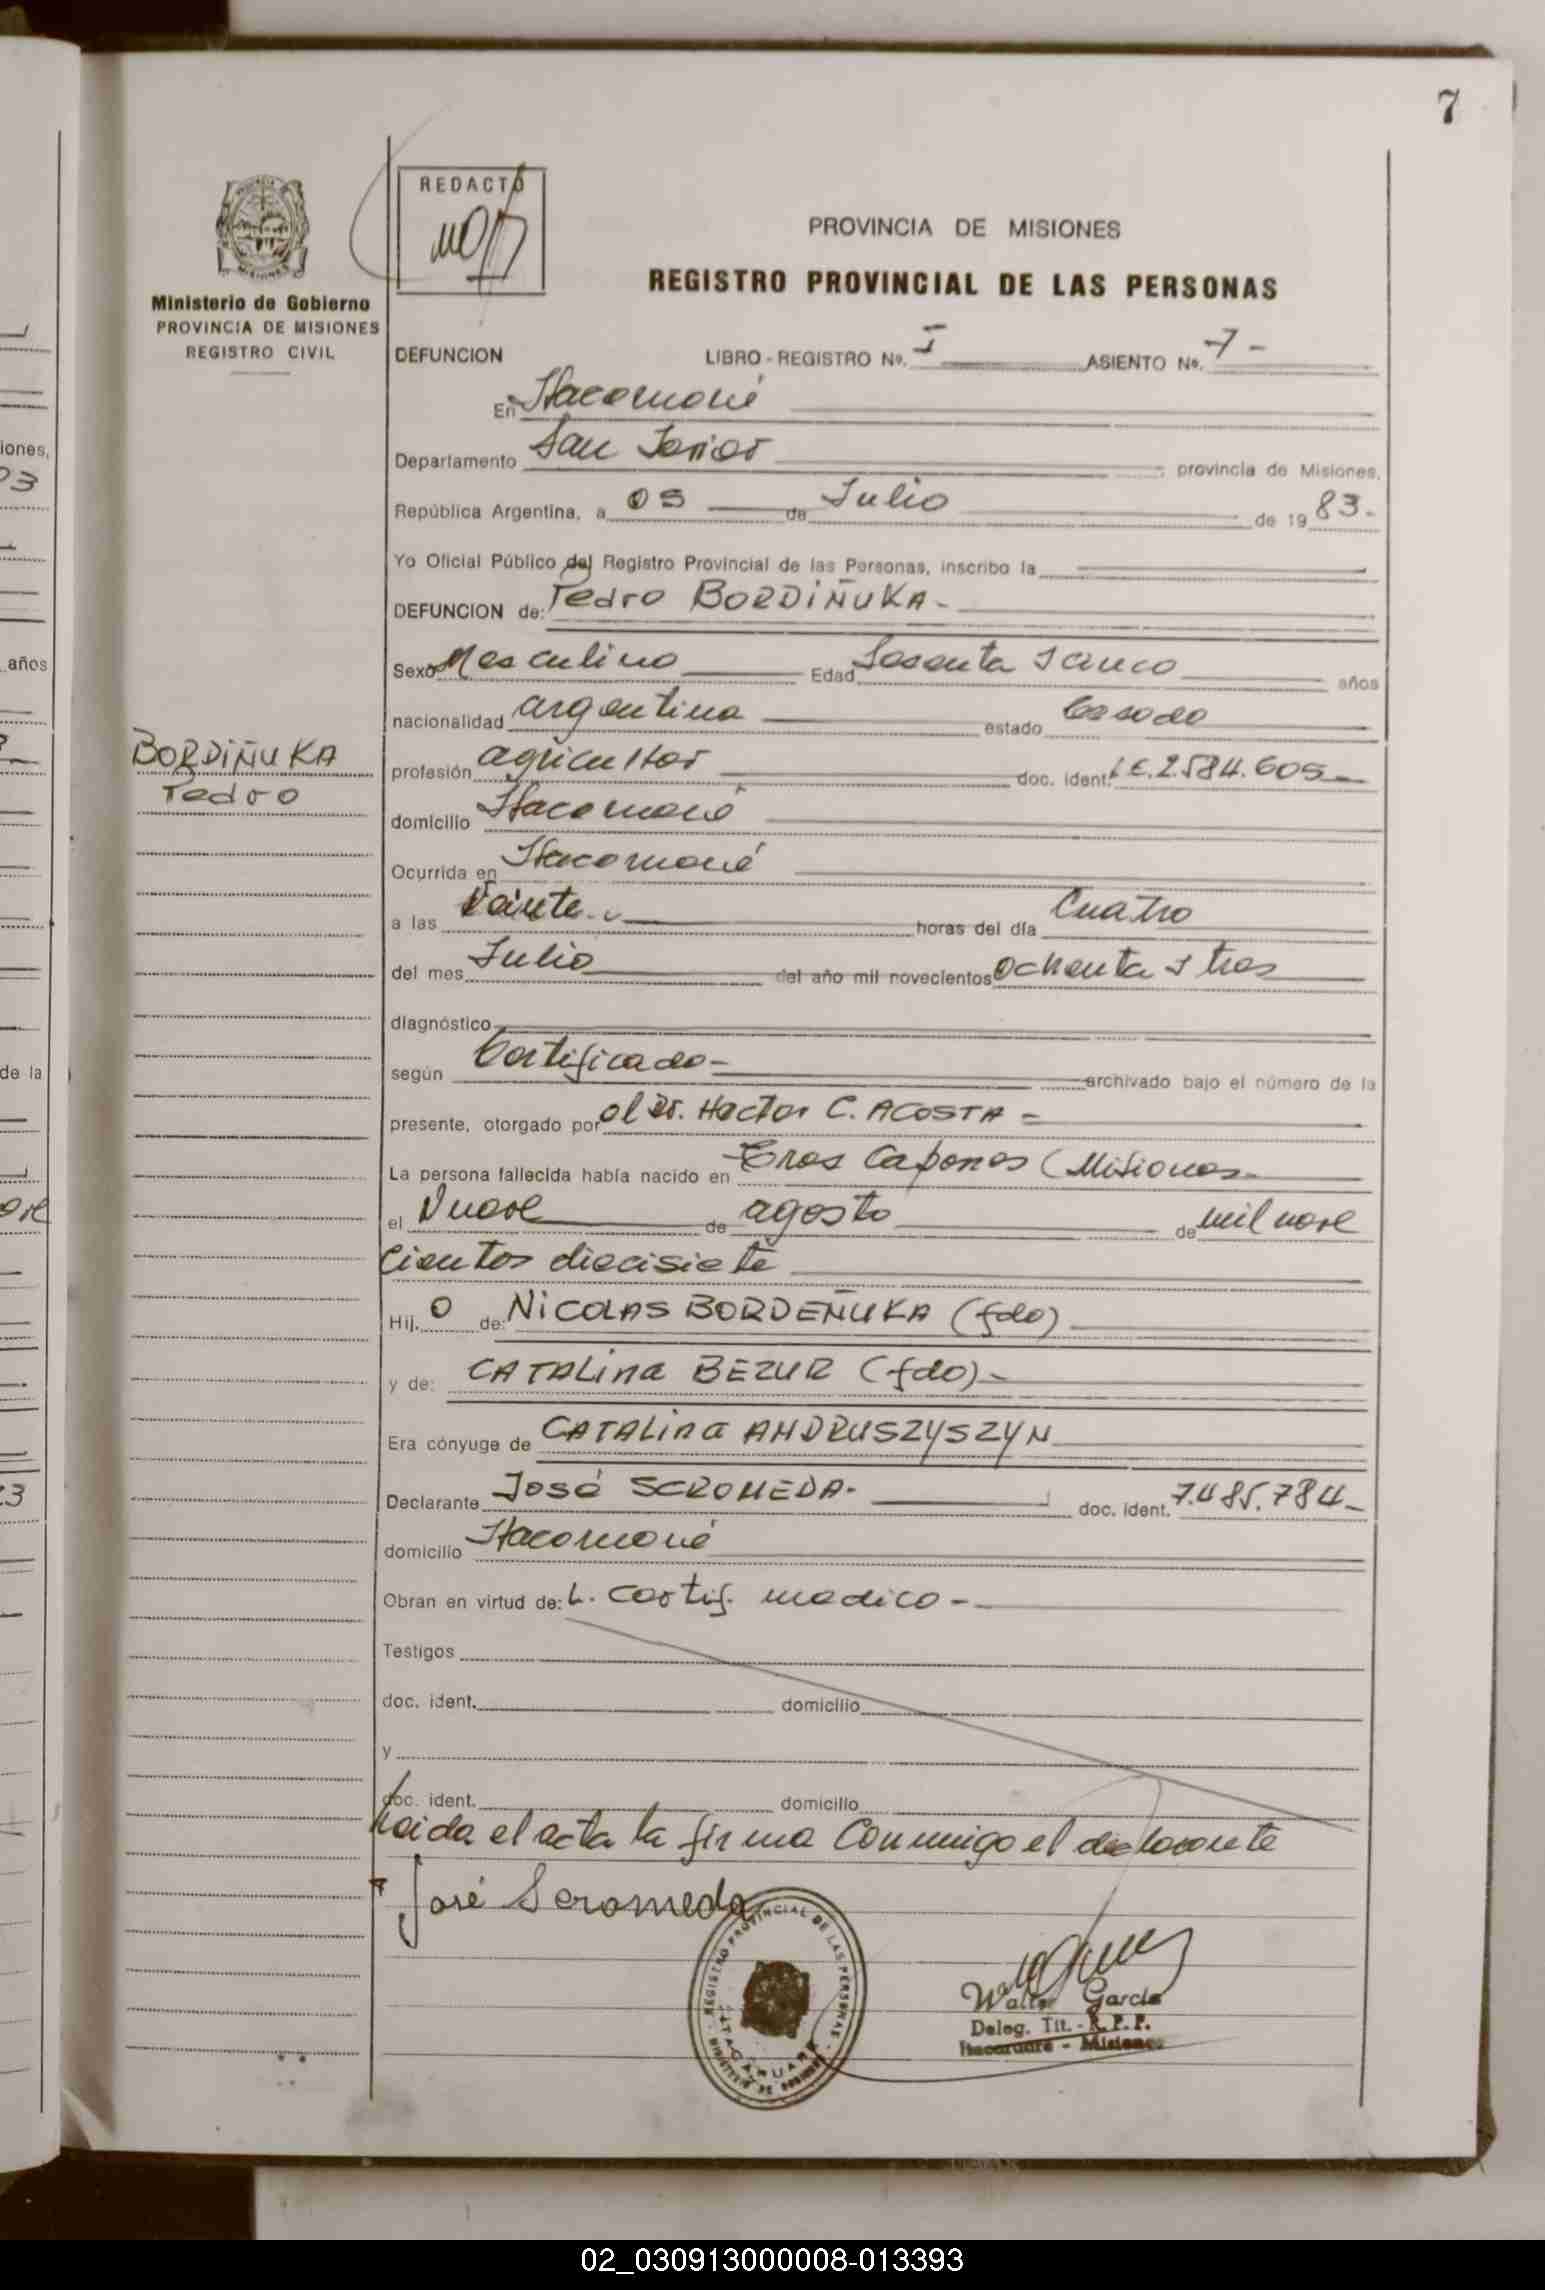 7
REDACTO
PROVINCIA DE MISIONES
REGISTRO PROVINCIAL DE LAS PERSONAS
Ministerio de Gobierno
PROVINCIA DE MISIONES
REGISTRO CIVIL
DEFUNCION LIBRO - REGISTRO Nº. I ASIENTO Nº. 7 -
En Itacaruaré
Departamento San Javier provincia de Misiones,
República Argentina, a 05 de Julio de 1983.-
Yo Oficial Público del Registro Provincial de las Personas, inscribo la
DEFUNCION de: Pedro BORDIÑUKA -
Sexo Masculino Edad Sesenta y cinco años
nacionalidad argentina estado Casado
BORDIÑUKA
Pedro
profesión agricultor doc. ident. L.E. 2.584.605 -
domicilio Itacaruaré
Ocurrida en Itacaruaré
a las Veinte horas del día Cuatro
del mes Julio del año mil novecientos Ochenta y tres
diagnóstico
según Certificado - archivado bajo el número de la
presente, otorgado por el Dr. Hector C. ACOSTA -
La persona fallecida había nacido en Tres Capones (Misiones -
el Nueve de agosto de mil nove
cientos diecisiete
Hij. o de: NICOLAS BORDEÑUKA (fdo)
y de: CATALINA BEZUR (fdo) -
Era cónyuge de CATALINA ANDRUSZYSZYN
Declarante José SCROMEDA - doc. ident. 7.485.784 -
domicilio Itacaruaré
Obran en virtud de: L. Certif. medico -
Testigos
doc. ident. domicilio
y
doc. ident. domicilio
Leida el acta la firma Conmigo el declarante
José Scromeda
REGISTRO PROVINCIAL DE LAS PERSONAS
ITACARUARE
MINISTERIO DE GOBIERNO
Walter Garcia
Deleg. Tit. - R. P. P.
Itacaruaré - Misiones
iones,
03
años
de la
02_030913000008-013393